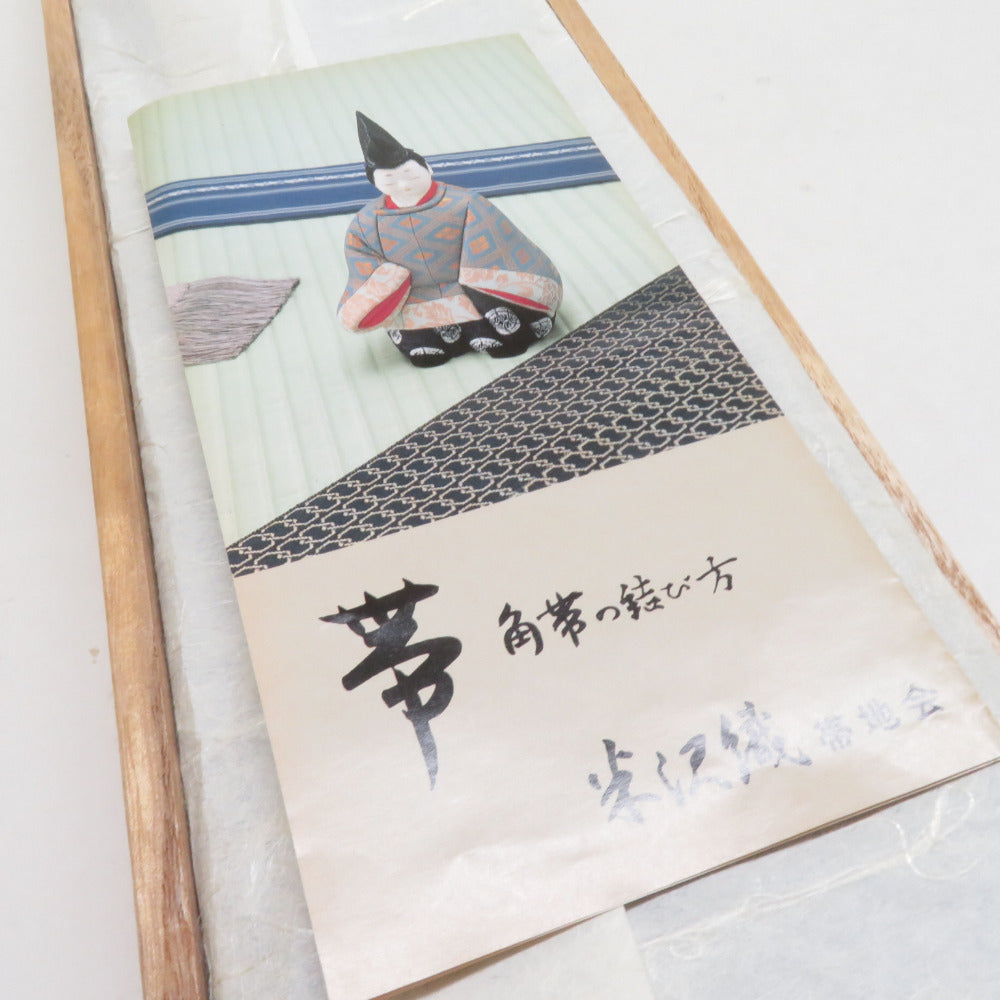 帯 角帯の結び方
米沢織 帯地会